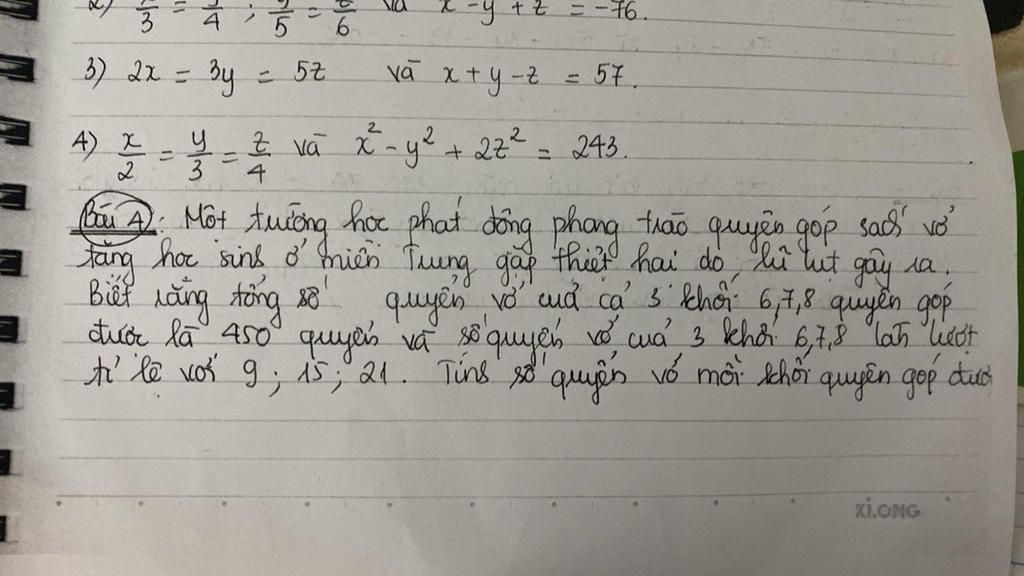 2) x/3 = y/4 ; y/5 = z/6 và x - y + z = -76.
3) 2x = 3y = 5z và x + y - z = 57.
4) x/2 = y/3 = z/4 và x² - y² + 2z² = 243.
Bài 4: Một trường học phát động phong trào quyên góp sách vở
tặng học sinh ở miền Trung gặp thiệt hại do lũ lụt gây ra.
Biết rằng tổng số quyển vở của cả 3 khối 6,7,8 quyên góp
được là 450 quyển và số quyển vở của 3 khối 6,7,8 lần lượt
tỉ lệ với 9 ; 15 ; 21. Tính số quyển vở mỗi khối quyên góp đượ
KLONG